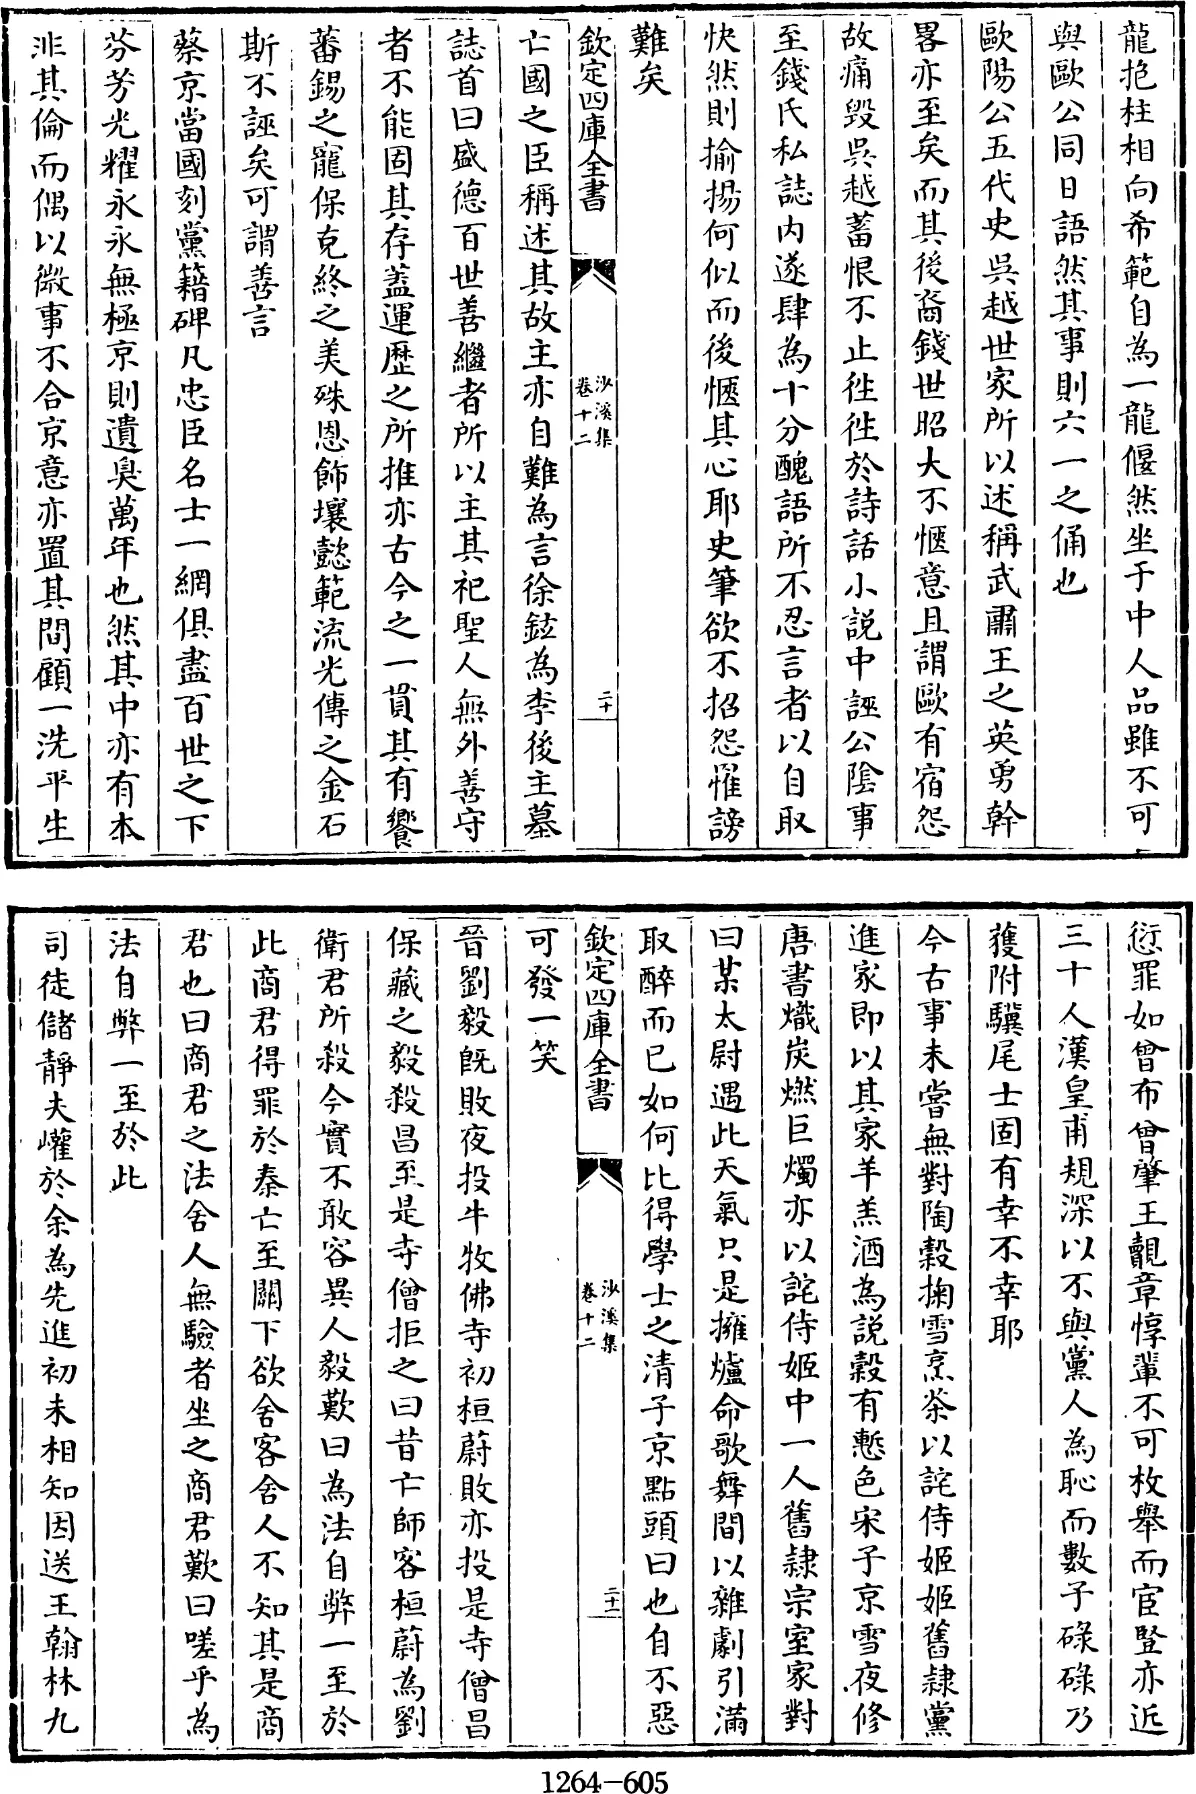 龍抱柱相向希範自為一龍偃然坐于中人品雖不可
與歐公同日語然其事則六一之俑也
歐陽公五代史呉越世家所以述稱武肅王之英勇幹
畧亦至矣而其後裔錢世昭大不愜意且謂歐有宿怨
故痛毀呉越蓄恨不止徃徃於詩話小説中誣公陰事
至錢氏私誌内遂肆為十分醜語所不忍言者以自取
快然則揄揚何似而後愜其心耶史筆欲不招怨罹謗
難矣
欽定四庫全書
沙溪集
卷十二
二十
亡國之臣稱述其故主亦自難為言徐鉉為李後主墓
誌首曰盛德百世善繼者所以主其祀聖人無外善守
者不能固其存蓋運歴之所推亦古今之一貫其有饗
蕃錫之寵保克終之美殊恩飾壤懿範流光傳之金石
斯不誣矣可謂善言
蔡京當國刻黨籍碑凡忠臣名士一網俱盡百世之下
芬芳光耀永永無極京則遺臭萬年也然其中亦有本
非其倫而偶以微事不合京意亦置其間顧一洗平生
愆罪如曾布曾肇王覿章惇輩不可枚舉而宦豎亦近
三十人漢皇甫規深以不與黨人為恥而數子碌碌乃
獲附驥尾士固有幸不幸耶
今古事未嘗無對陶穀掬雪烹茶以詫侍姬姬舊隷黨
進家即以其家羊羔酒為説穀有慙色宋子京雪夜修
唐書熾炭燃巨燭亦以詫侍姬中一人舊隷宗室家對
曰某太尉遇此天氣只是擁爐命歌舞間以雜劇引滿
取醉而已如何比得學士之清子京點頭曰也自不惡
欽定四庫全書
沙溪集
卷十二
二十一
可發一笑
晉劉毅既敗夜投牛牧佛寺初桓蔚敗亦投是寺僧昌
保藏之毅殺昌至是寺僧拒之曰昔亡師客桓蔚為劉
衛君所殺今實不敢容異人毅歎曰為法自弊一至於
此商君得罪於秦亡至關下欲舍客舍人不知其是商
君也曰商君之法舍人無驗者坐之商君歎曰嗟乎為
法自弊一至於此
司徒儲靜夫巏於余為先進初未相知因送王翰林九
1264-605